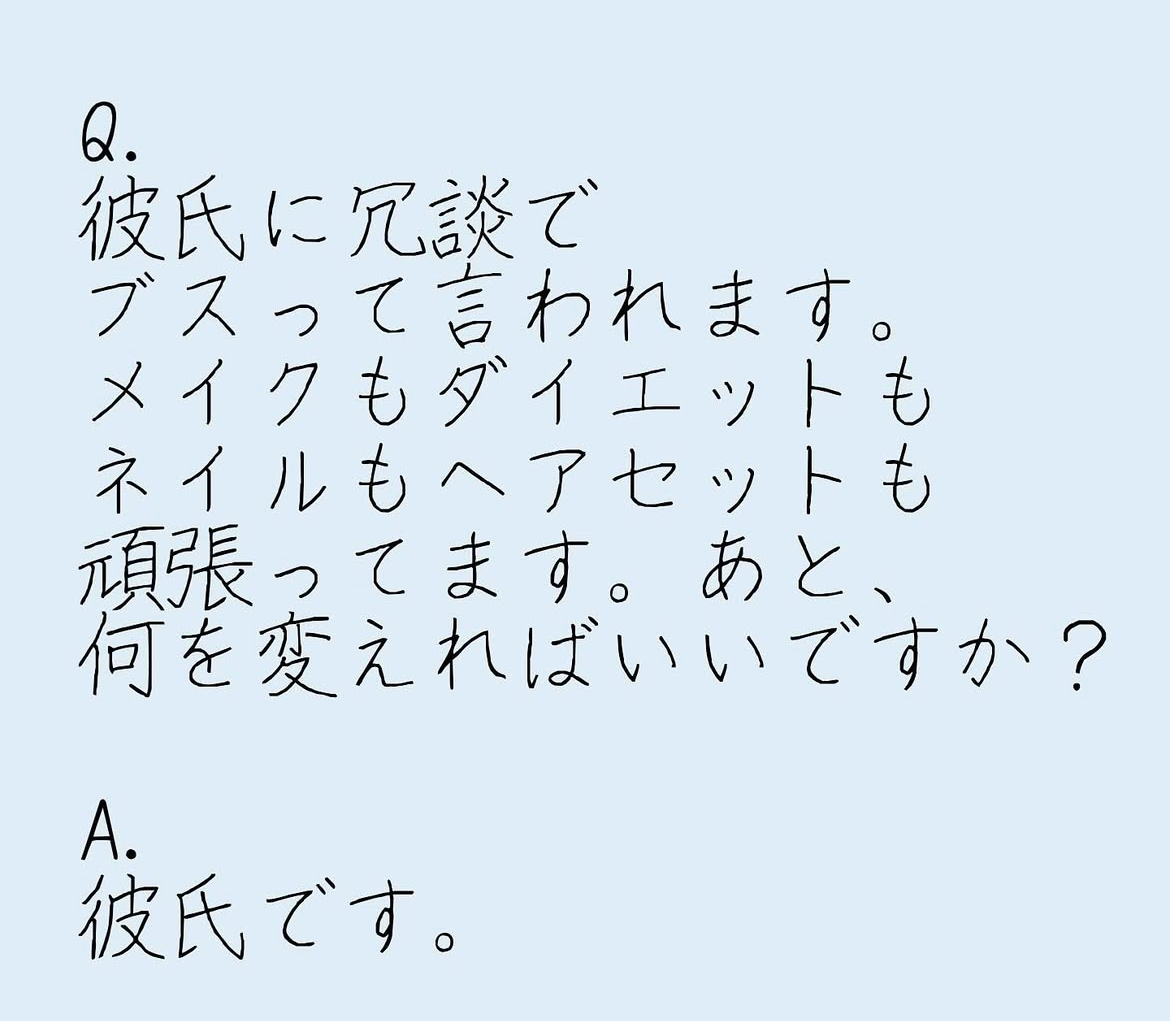 Q.
彼氏に冗談で
ブスって言われます。
メイクもダイエットも
ネイルもヘアセットも
頑張ってます。あと、
何を変えればいいですか？
A.
彼氏です。